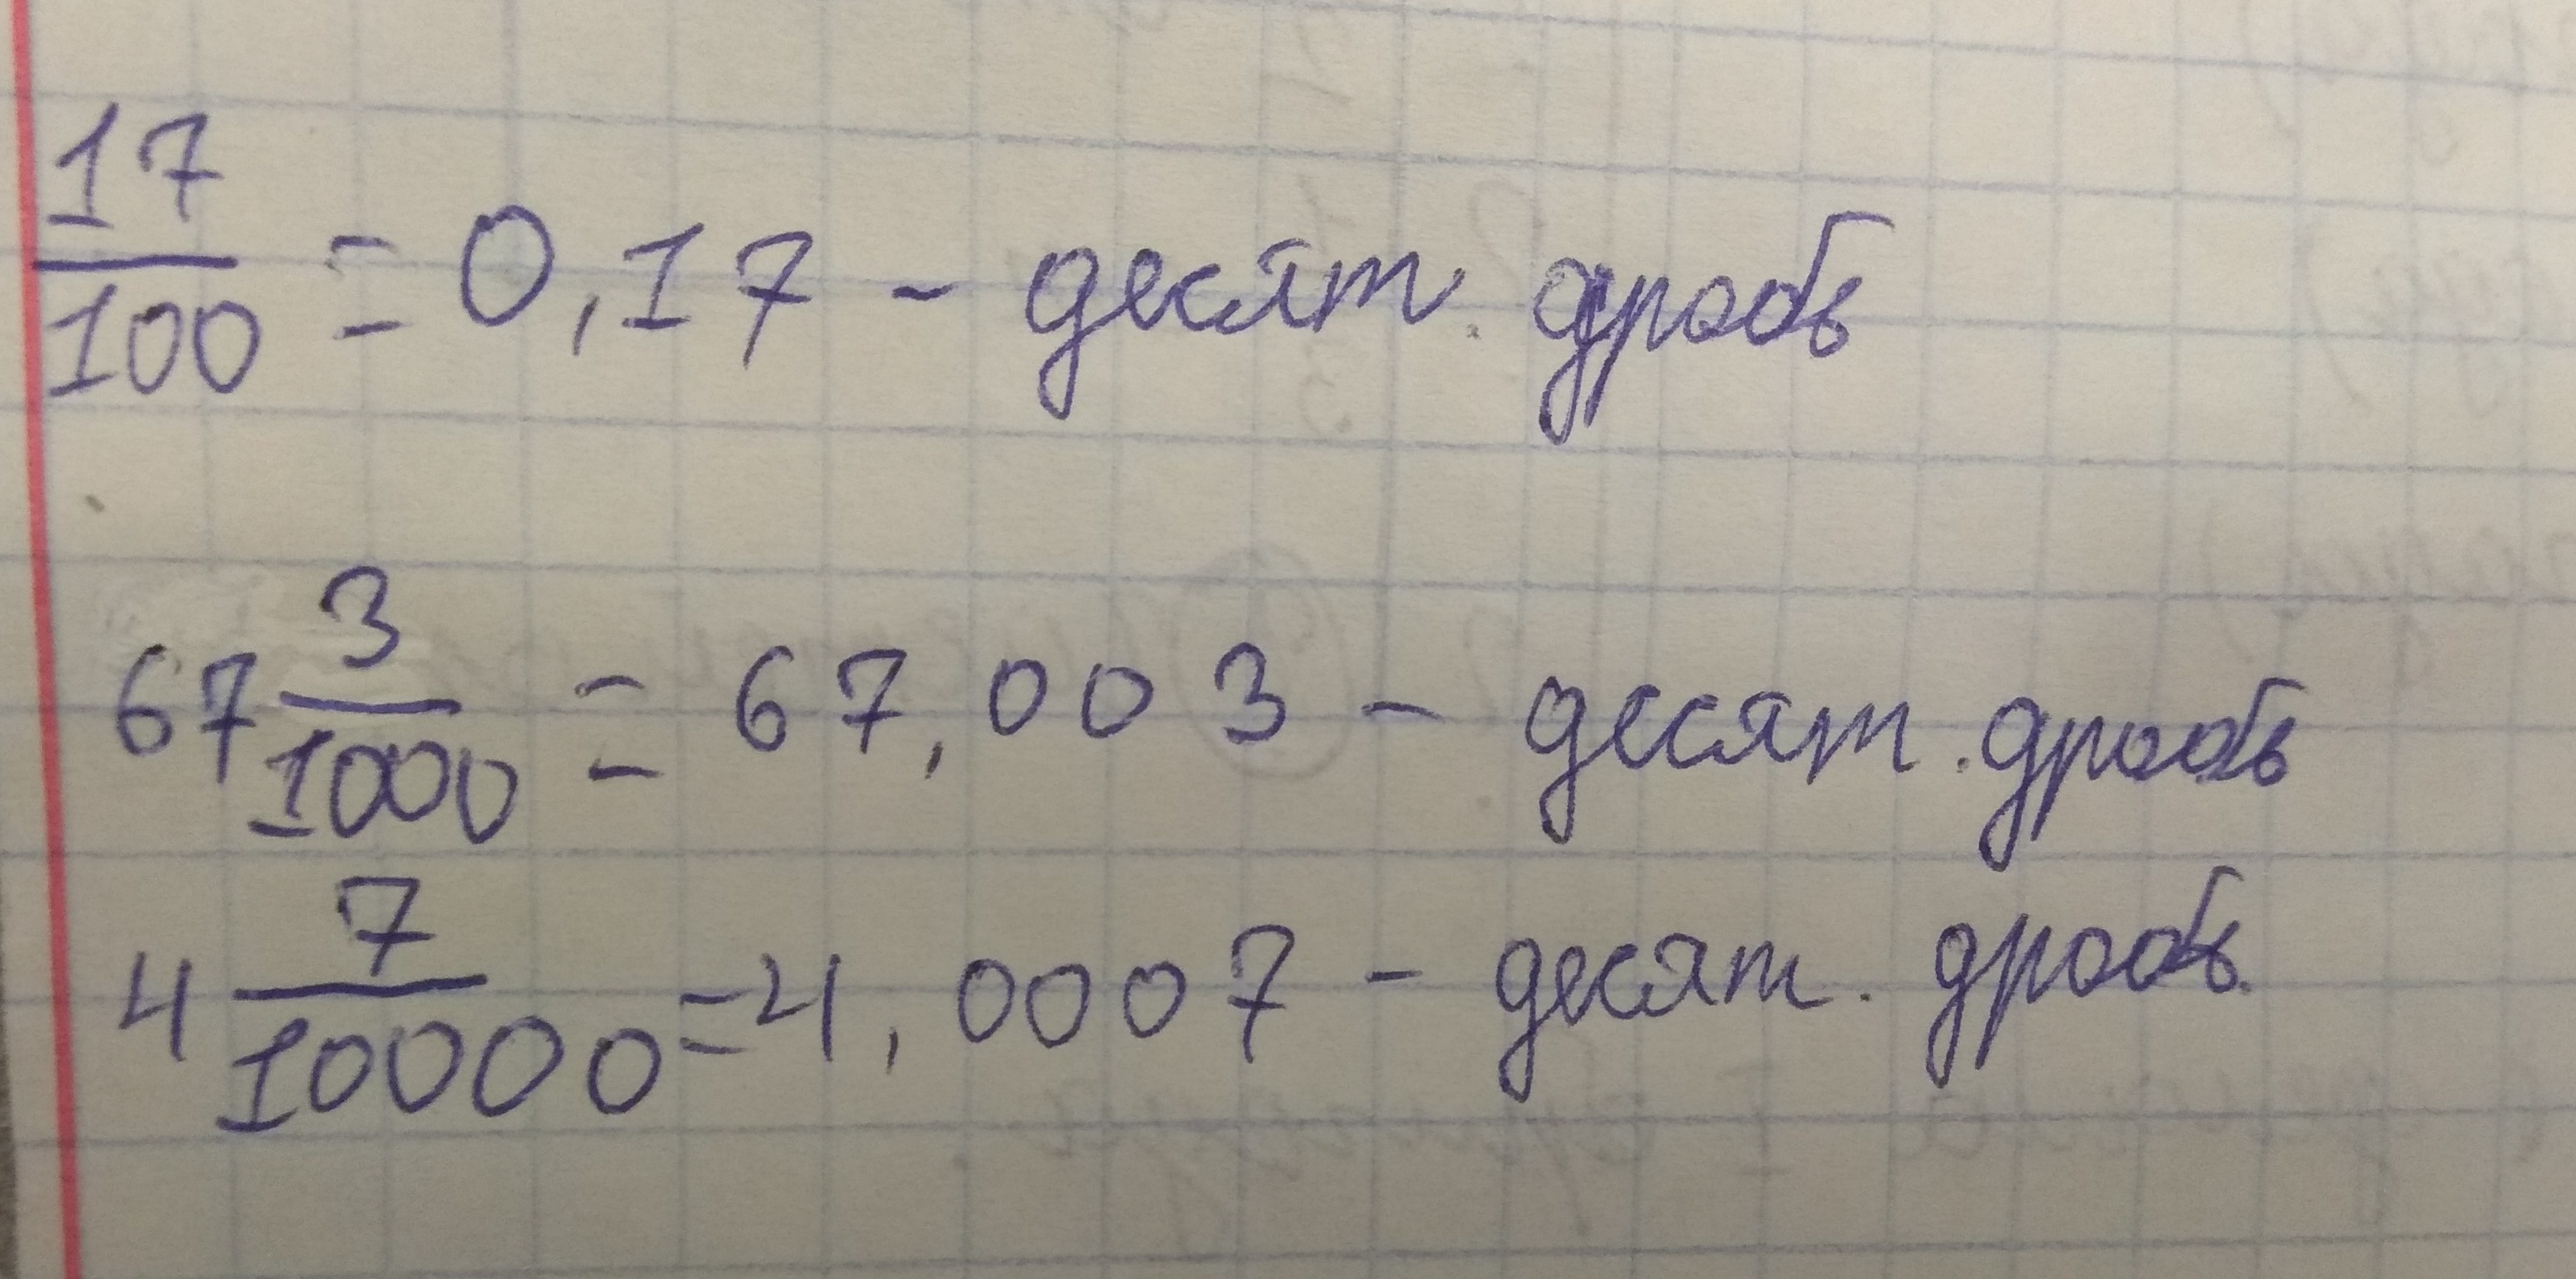 17/100 = 0,17 - десят. дробь
67 3/1000 = 67,003 - десят. дробь
4 7/10000 = 4,0007 - десят. дробь